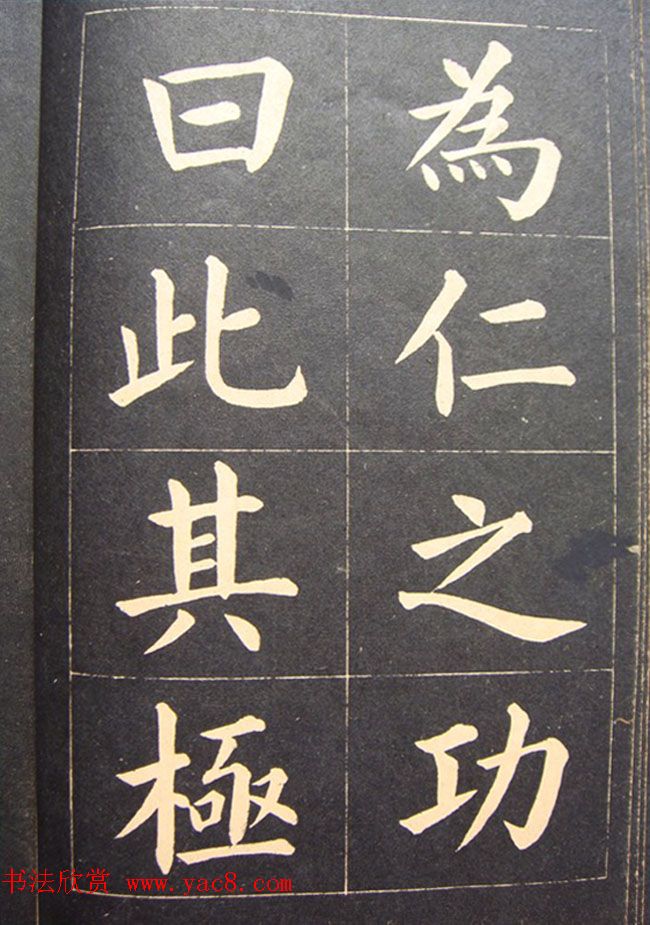 為仁之功
曰此其極
书法欣赏 www.yac8.com